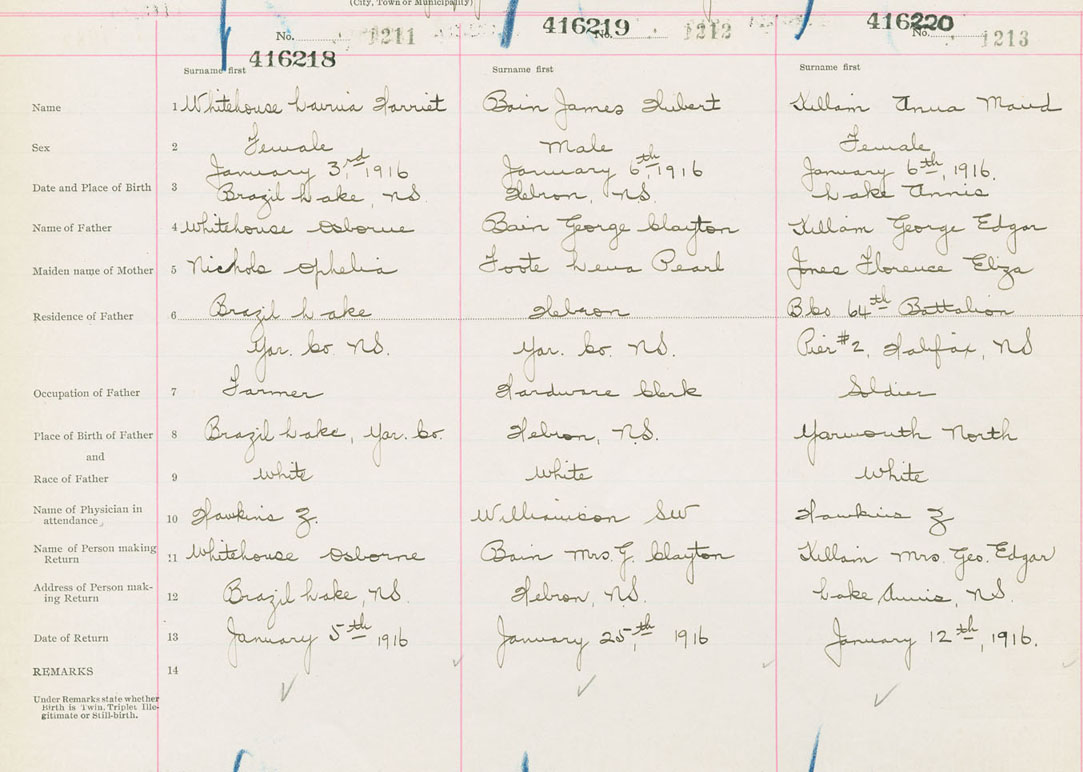 (City, Town or Municipality)
No. 1211
416218
416219
No. 1212
416220
No. 1213
Surname first
Surname first
Surname first
Name 1 Whitehouse Harriet
Bain James Hubert
Killam Anna Maud
Sex 2 Female
Male
Female
Date and Place of Birth 3 January 3,rd 1916
Brazil Lake, NS.
January 6,th 1916
Hebron, NS.
January 6th, 1916.
Lake Annis
Name of Father 4 Whitehouse Osborne
Bain George Clayton
Killam George Edgar
Maiden name of Mother 5 Nichols Ophelia
Foote Lena Pearl
Jones Florence Eliza
Residence of Father 6 Brazil Lake
Yar. Co. NS.
Hebron
Yar. Co. NS.
64th Battalion
Pier #2, Halifax, NS
Occupation of Father 7 Farmer
Hardware Clerk
Soldier
Place of Birth of Father 8 Brazil Lake, Yar. Co.
Hebron, N.S.
Yarmouth North
and
Race of Father 9 White
White
White
Name of Physician in
attendance 10 Hawkins Z.
Williamson SW
Hawkins Z
Name of Person making
Return 11 Whitehouse Osborne
Bain Mrs. G. Clayton
Killam Mrs. Geo. Edgar
Address of Person mak-
ing Return 12 Brazil Lake, NS.
Hebron, N.S.
Lake Annis, N.S.
Date of Return 13 January 5th 1916
January 25th, 1916
January 12th, 1916.
REMARKS 14
Under Remarks state whether
Birth is Twin, Triplet Ille-
gitimate or Still-birth.